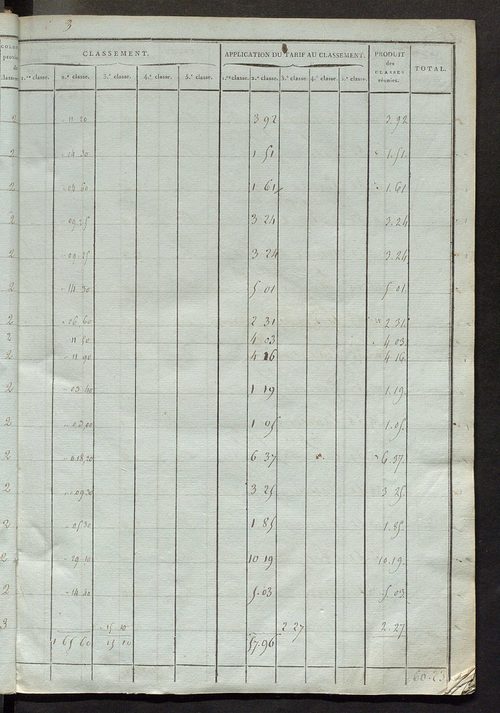 3
CLASSEMENT. APPLICATION DU TARIF AU CLASSEMENT. PRODUIT des CLASSES réunies. TOTAL.
1.re classe. 2.e classe. 3.e classe. 4.e classe. 5.e classe. 1.re classe. 2.e classe. 3.e classe. 4.e classe. 5.e classe.
2 3 92 3.92
2 14 30 1 51 1.51
2 04 60 1 61 1.61
2 09 25 3 24 3.24
2 3 24 3.24
2 14 30 5 01 5 01
2 06 60 2 31 2 31
2 11 50 4 03 4 03
2 11 90 4 16 4 16
2 03 40 1 19 1.19
2 1 05 1.05
2 18.20 6 37 6.37
2 09 30 3 25 3 25
2 05 30 1 85 1.85
2 29 10 10 19 10.19
2 14 40 5.03 5 03
3 15 10 2 27 2.27
1 65 60 15 10 57.96
60 23